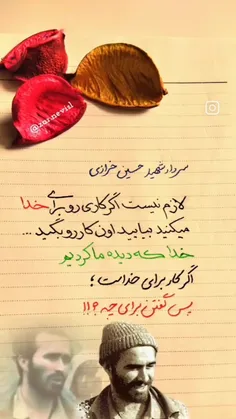 @zar.nevisi
سردار شهید حسین خرازی
لازم نیست اگر کاری رو برای خدا
میکنید بیایید اون کار رو بگید ...
خدا که دیده ما کردیم
اگر کار برای خداست ؛
پس گفتن برای چه ؟!!